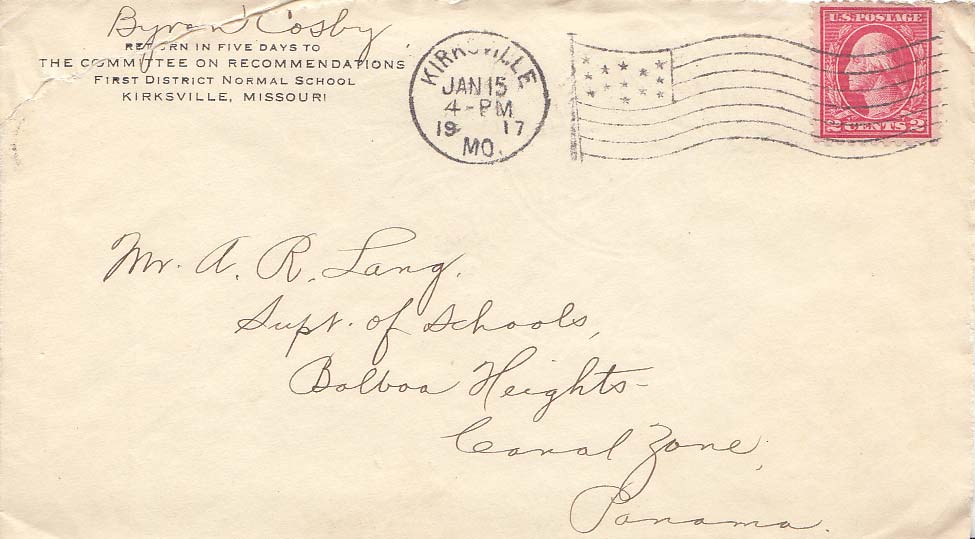 Byron Cosby
RETURN IN FIVE DAYS TO
THE COMMITTEE ON RECOMMENDATIONS
FIRST DISTRICT NORMAL SCHOOL
KIRKSVILLE, MISSOURI
KIRKSVILLE
JAN 15
4-PM
19 17
MO.
U.S. POSTAGE
2 CENTS 2
Mr. A. R. Lang.
Supt. of Schools,
Balboa Heights-
Canal Zone,
Panama.